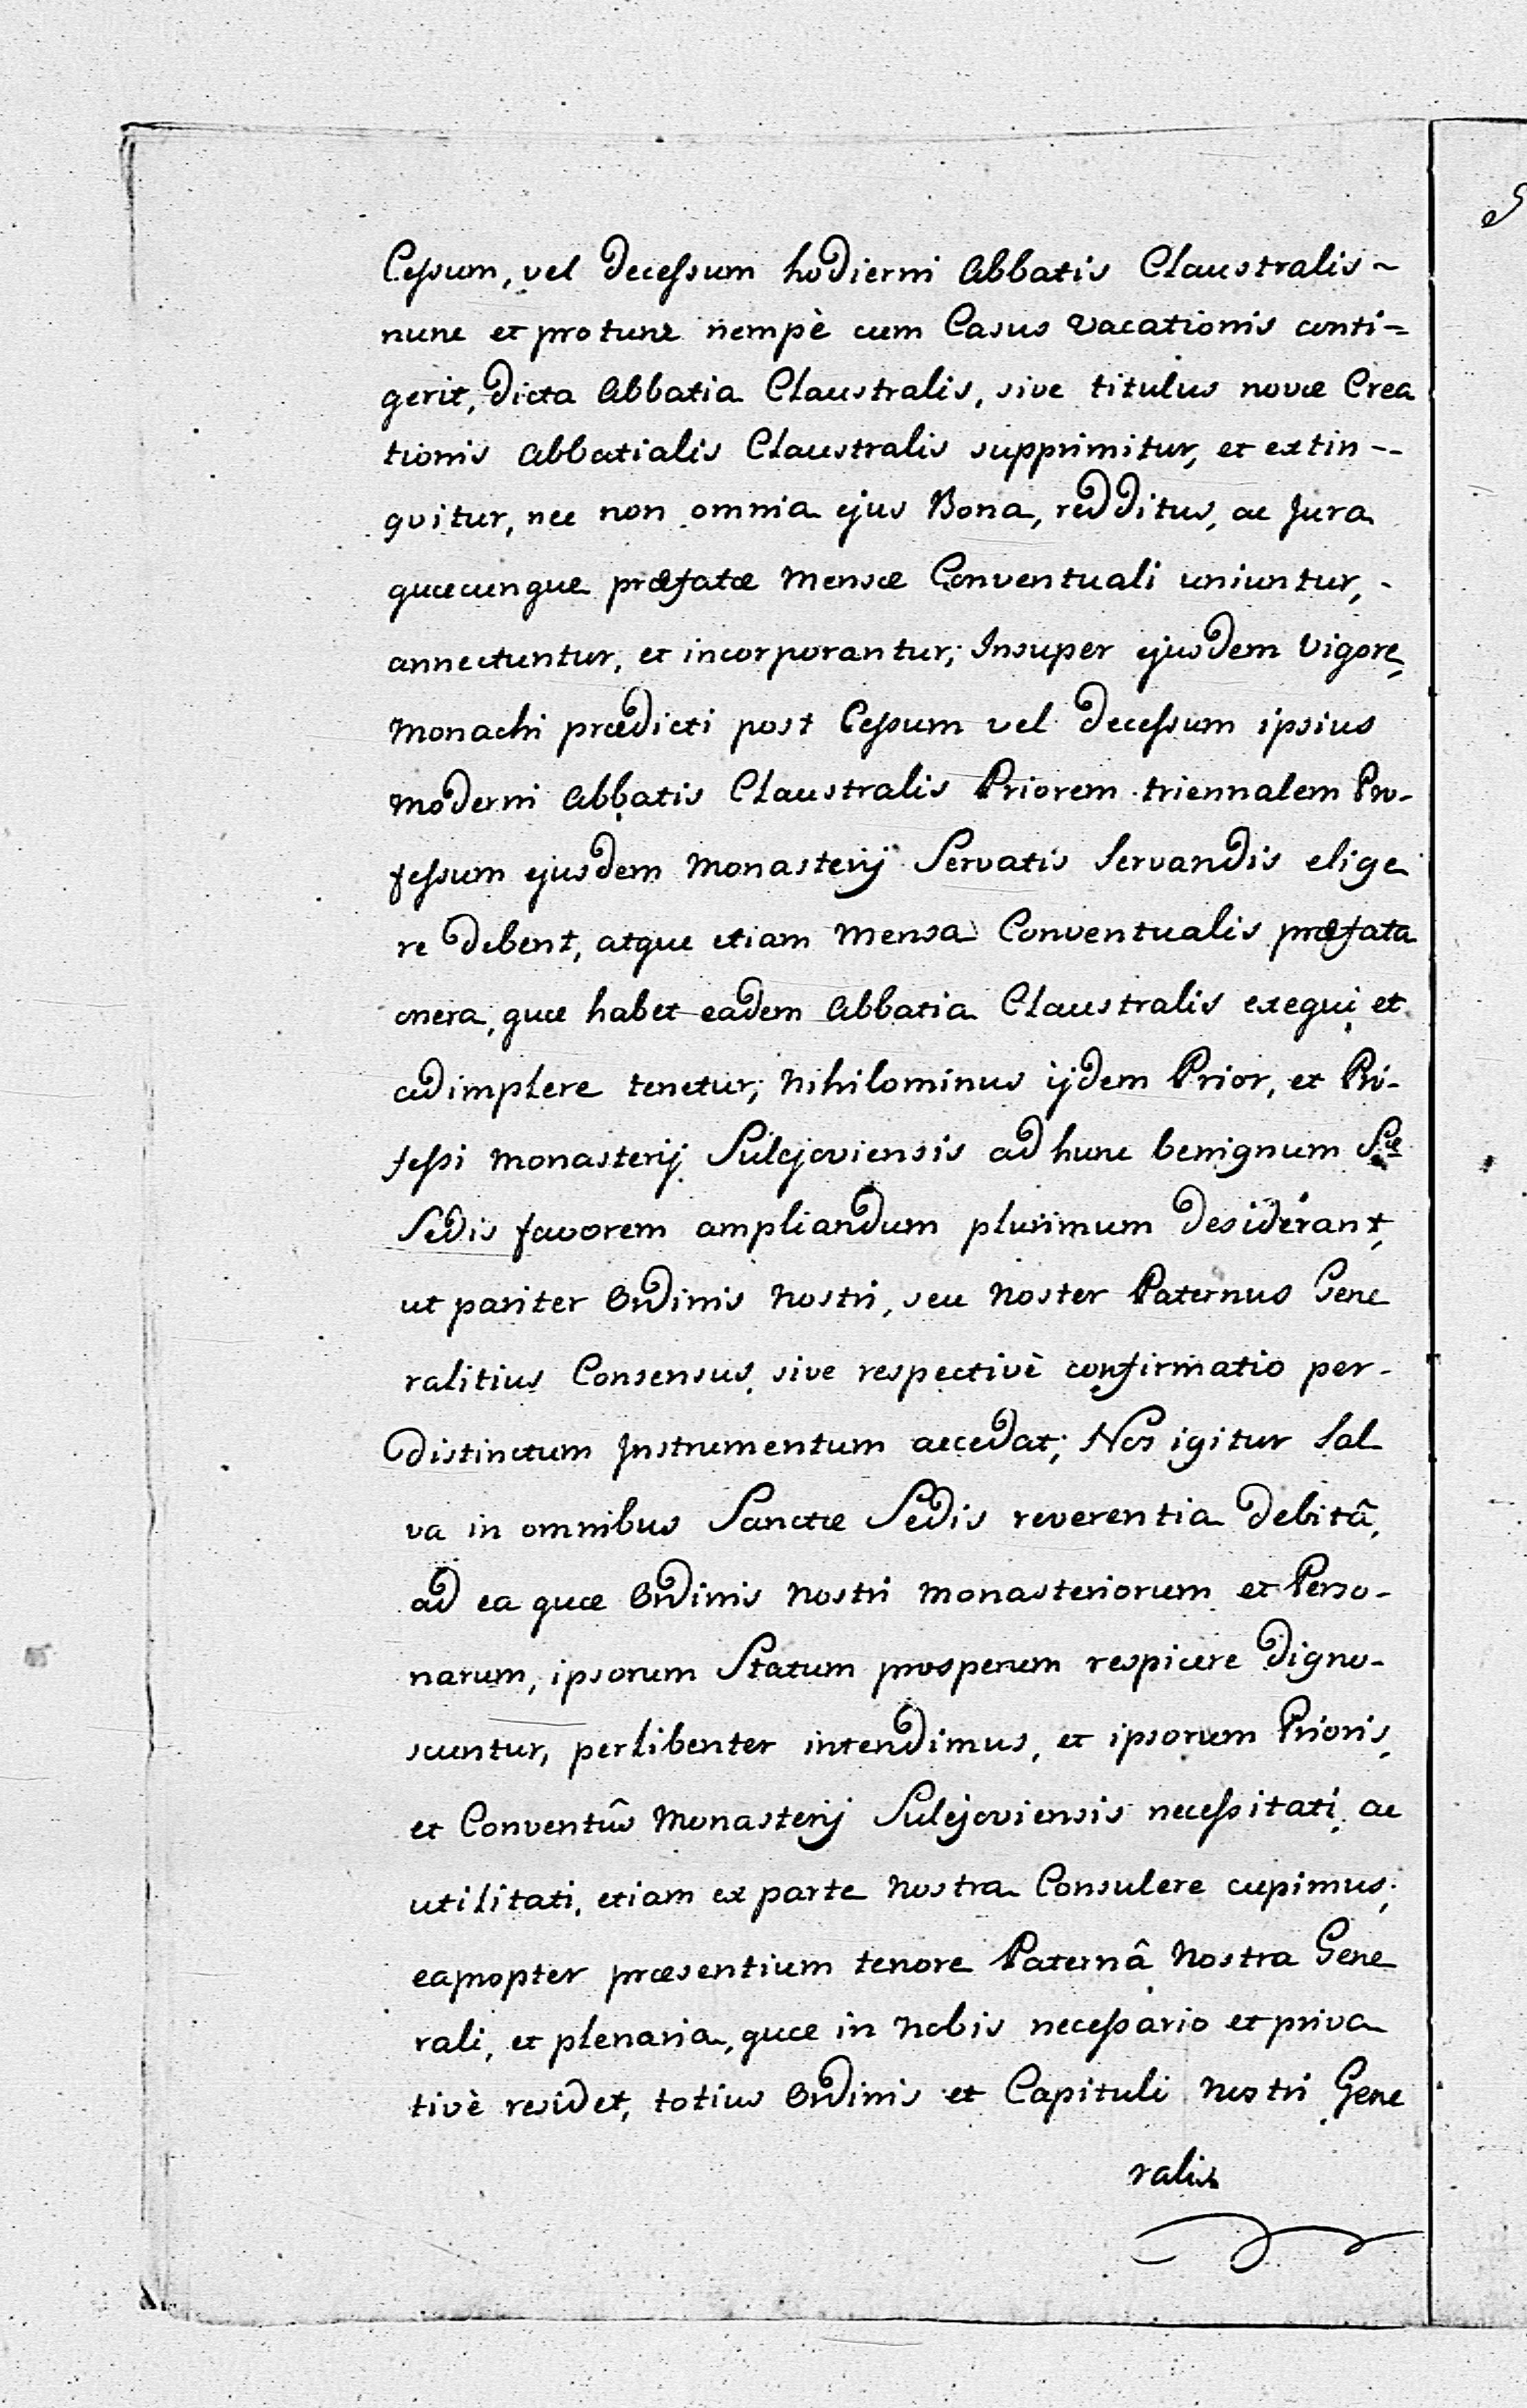 Cessum, vel decessum hodierni Abbatis Claustralis ~
nunc et pro tunc nempè cum Casus Vacationis conti=
gerit, dicta Abbatia Claustralis, sive titulus novæ Crea
tionis Abbatialis Claustralis supprimitur, et extin--
gvitur, nec non omnia ejus Bona, redditus, ac Jura
quæcunque præfatæ Mensæ Conventuali uniuntur, -
annectuntur, et incorporantur; Insuper ejusdem Vigore,
Monachi prædicti post Cessum vel decessum ipsius
Moderni Abbatis Claustralis Priorem triennalem Pro-
fessum ejusdem Monasterij Servatis Servandis elige
re debent, atque etiam Mensa Conventualis præfata
onera, quæ habet eadem Abbatia Claustralis exequi et
adimplere tenetur; Nihilominus ijdem Prior, et Pro-
fessi Monasterij Sulejoviensis ad hunc benignum Sæ
Sedis favorem ampliandum plurimum desiderant,
ut pariter Ordinis Nostri, seu Noster Paternus Gene
ralitius Consensus, sive respectivè confirmatio per-
distinctum Instrumentum accedat; Nos igitur Sal
va in omnibus Sanctæ Sedis reverentia debitâ,
ad ea quæ Ordinis Nostri Monasteriorum et Perso-
narum, ipsorum Statum prosperum respicere digno-
scuntur, perlibenter intendimus, et ipsorum Prioris,
et Conventûs Monasterij Sulejoviensis necessitati, ac
utilitati, etiam ex parte Nostra Consulere cupimus;
eapropter præsentium tenore Paternâ Nostra Gene
rali, et plenaria, quæ in Nobis necessario et priva
tivè residet, totius Ordinis et Capituli Nostri Gene
ralis